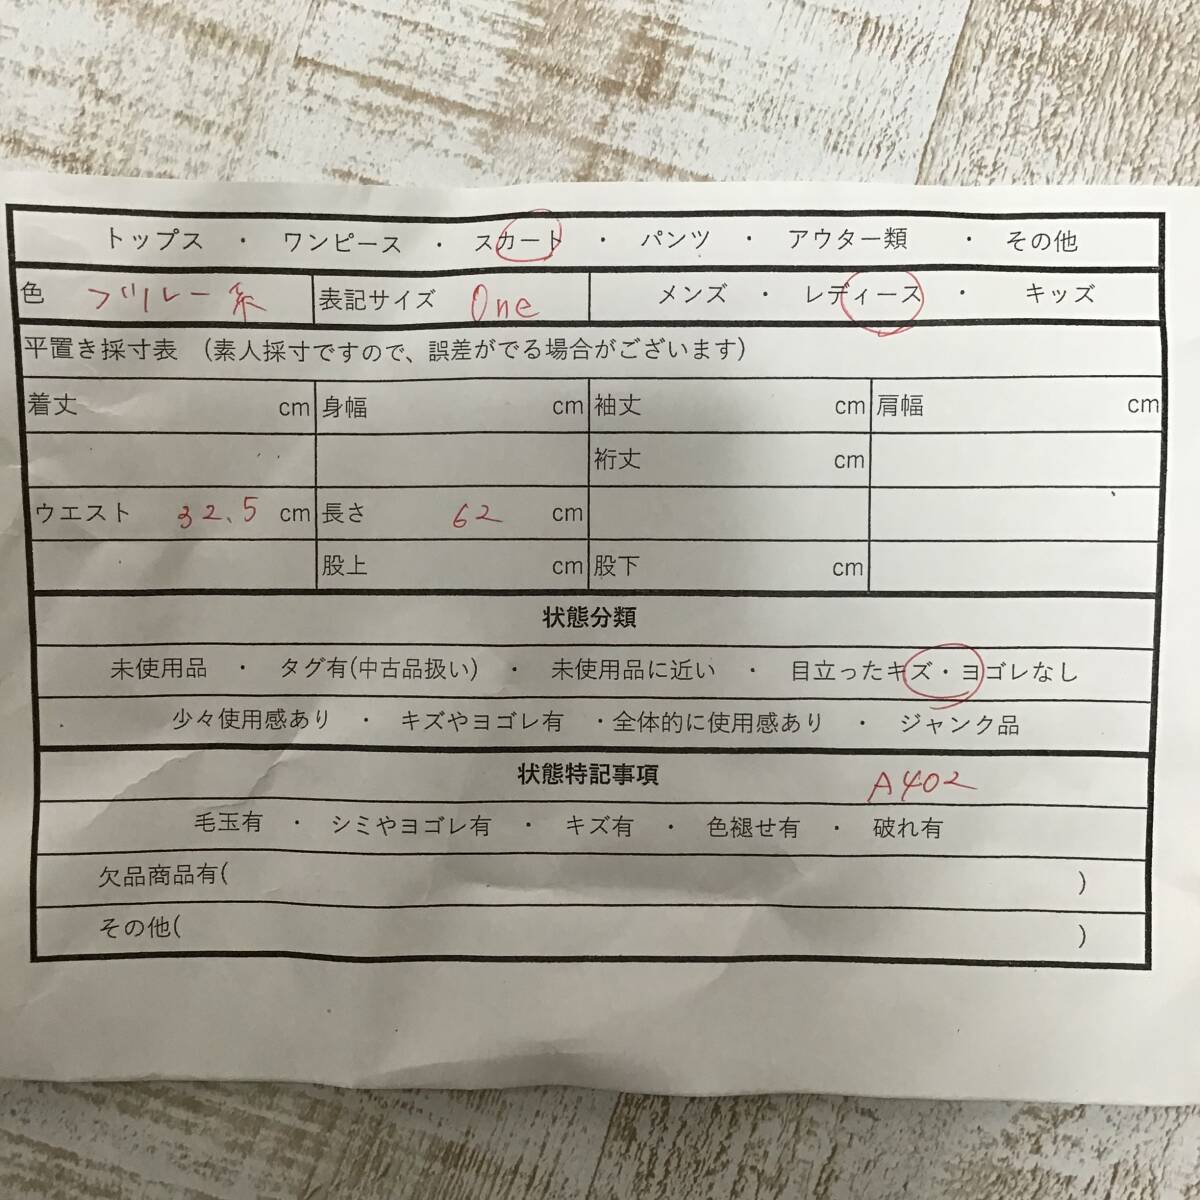 トップス ・ ワンピース ・ スカート ・ パンツ ・ アウター類 ・ その他
色 ブルー系 表記サイズ One メンズ ・ レディース ・ キッズ
平置き採寸表 (素人採寸ですので、誤差がでる場合がございます)
着丈 cm 身幅 cm 袖丈 cm 肩幅 cm
裄丈 cm
ウエスト 32.5 cm 長さ 62 cm
股上 cm 股下 cm
状態分類
未使用品 ・ タグ有(中古品扱い) ・ 未使用品に近い ・ 目立ったキズ・ヨゴレなし
少々使用感あり ・ キズやヨゴレ有 ・全体的に使用感あり ・ ジャンク品
状態特記事項 A402
毛玉有 ・ シミやヨゴレ有 ・ キズ有 ・ 色褪せ有 ・ 破れ有
欠品商品有( )
その他( )